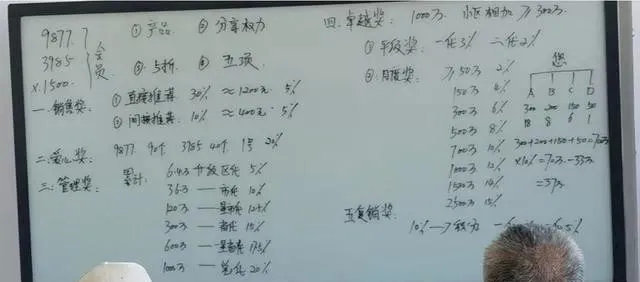 9877
3985
x1500
会员
① 产品 ② 分享权力
③ 5折 ④ 五项
一. 销售奖: ① 直接推荐 30% ≈1200元 5%
② 间接推荐 10% ≈400元 5%
二. 爱心奖: 9877 90个 3985 40个 1号 20%
三. 管理奖: 累计: 6.4万 升级区代 5%
36万 — 市代 10%
120万
300万 — 省代 15%
600万
1000万 20%
四. 卓越奖: 1000万 小区相加 ≥300万
① 年级奖: 一代3% 二代2%
② 月度奖: ≥50万 2%
150万 4%
300万 6%
500万 8%
700万 10%
1000万 12%
1500万 14%
2500万 15%
您
A B C D
300 200 150 50
18 8 6 1
300+200+150+50=700万
×10%=70万-33万
=37万
五. 复销奖:
10%